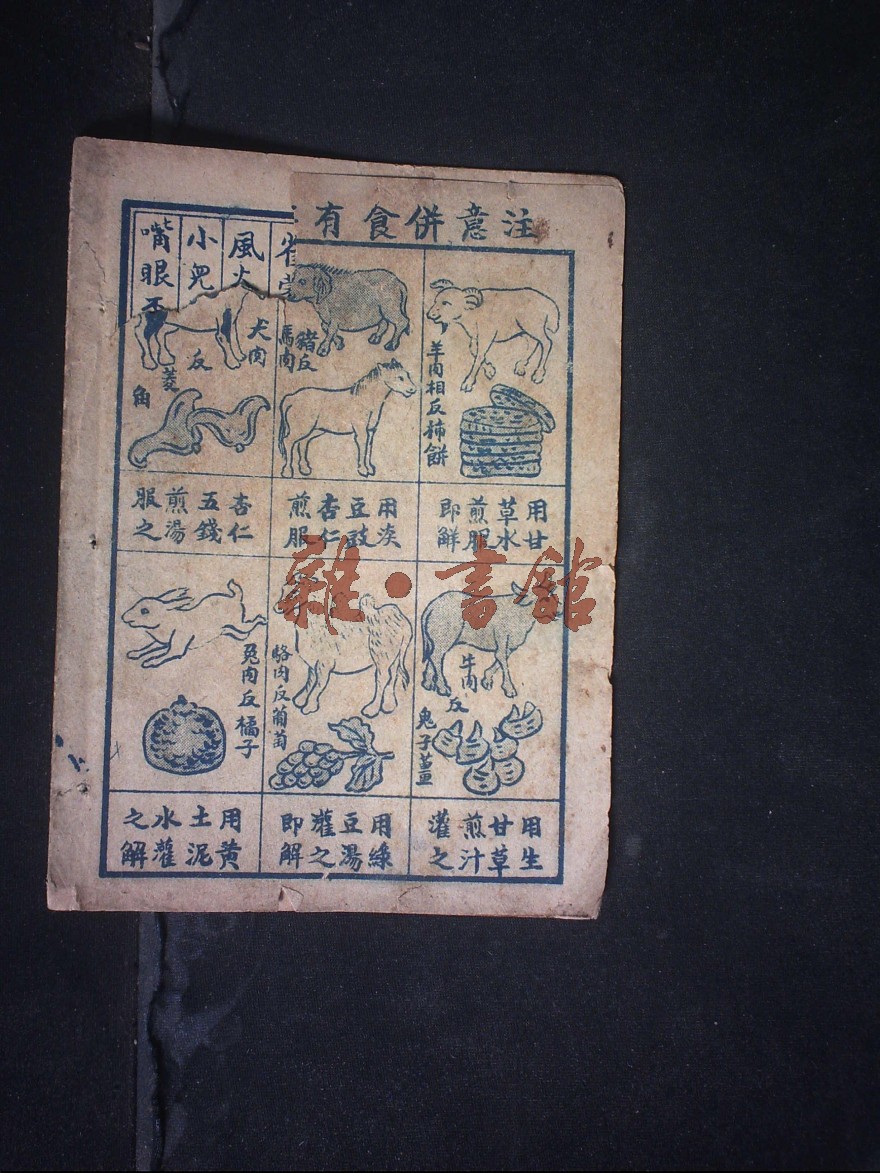 注意併食有
羊肉相反柿餅
用甘
草水
煎服
即解
豬反
馬肉
用淡
豆豉
杏仁
煎服
犬肉
反
菱
角
杏仁
五錢
煎湯
服之
風火
小兒
嘴眼歪
牛肉
反
鬼子薑
用生
甘草
煎汁
灌之
駱肉反葡萄
用綠
豆湯
灌之
即解
兔肉反橘子
用黃
土泥
水灌
之解
雜·書館